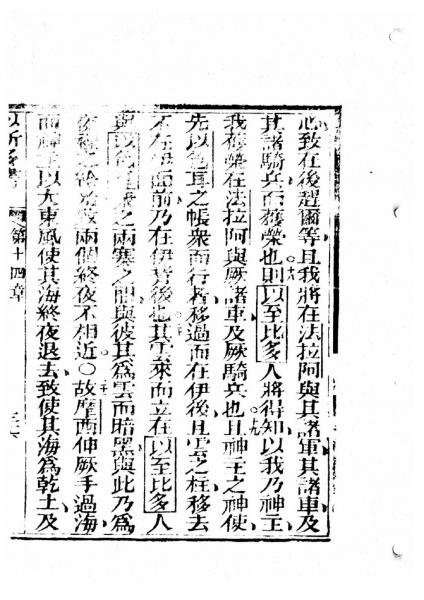 心致在後趕爾等且我將在法拉阿與其諸軍其諸車及
其諸騎兵而獲榮也則以至比多人將得知以我乃神主
我獲榮在法拉阿與厥諸車及厥騎兵也且神主之神使
先以色耳之帳衆而行者移過而在伊後且雲之柱移去
不在伊面前乃在伊背後也其雲來而立在以至比多人
與以色之兩寨之間與彼其爲雲而暗黑與此乃爲
夜致兩個終夜不相近○故摩西伸厥手過海
而神主以大東風使其海終夜退去致使其海爲乾土及
第十四章